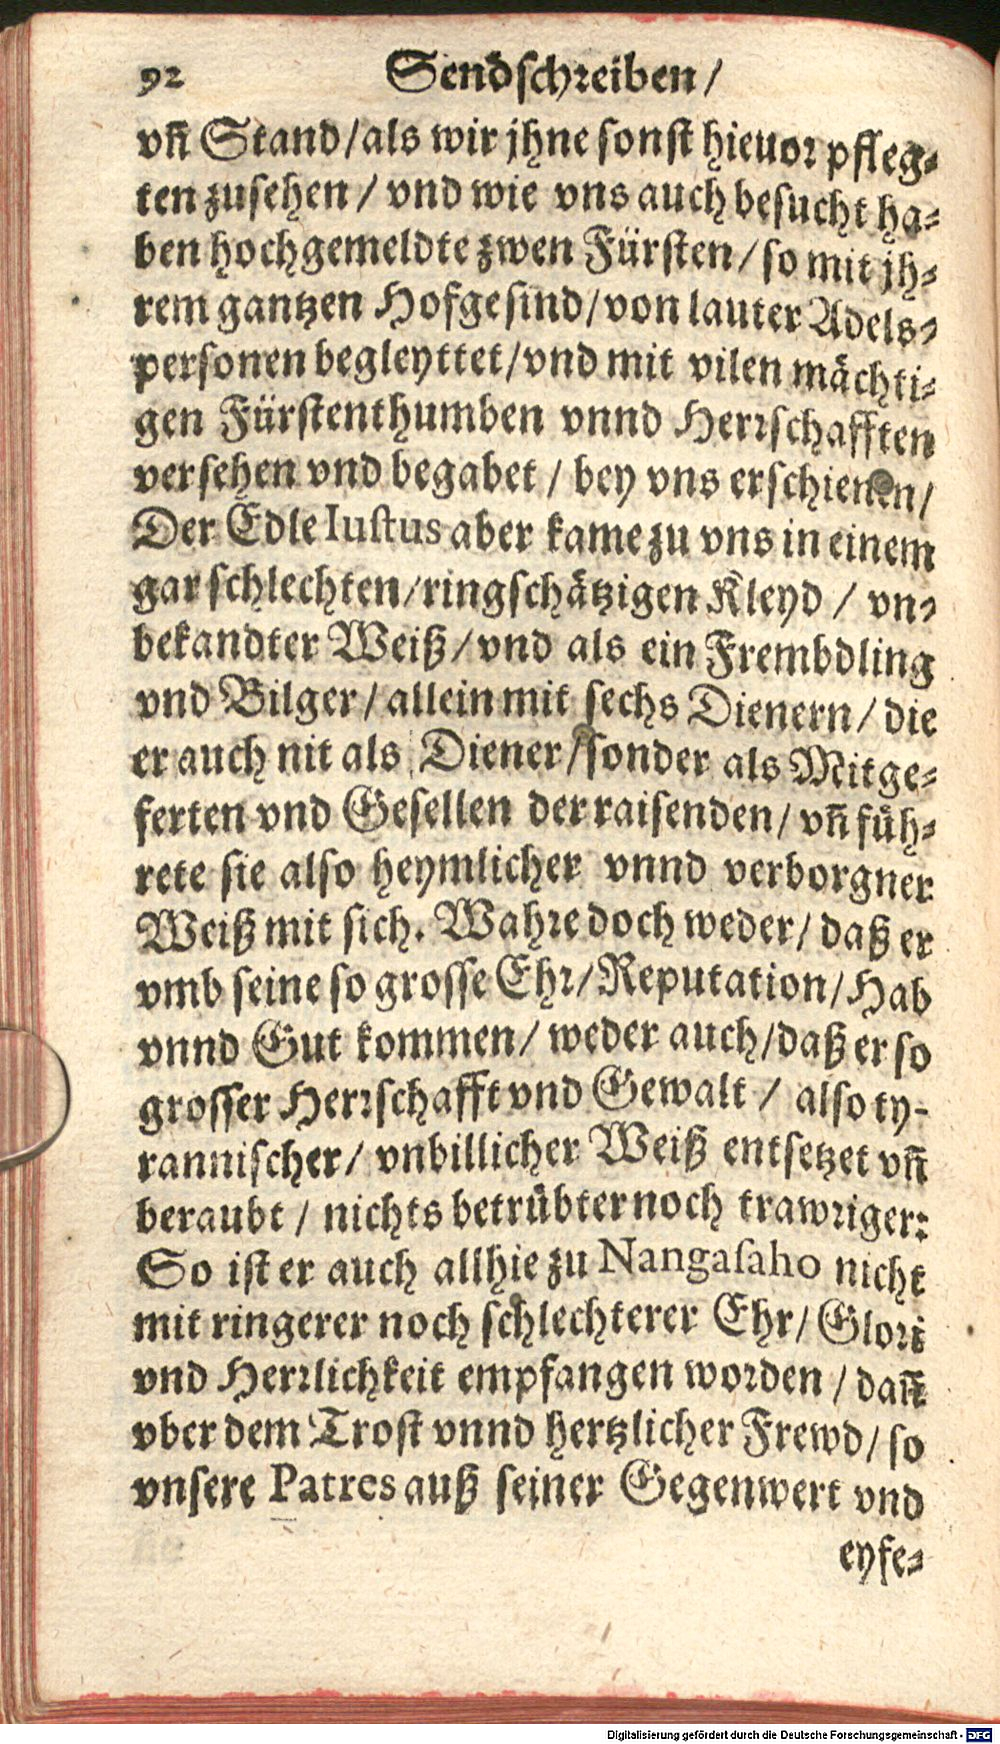 92 Sendschreiben/
vñ Stand/als wir jhne sonst hieuor pfleg-
ten zusehen / vnd wie vns auch besucht ha-
ben hochgemeldte zwen Fürsten/so mit jh-
rem gantzen Hofgesind/von lauter Adels-
personen begleyttet/vnd mit vilen mächti-
gen Fürstenthumben vnnd Herrschafften
versehen vnd begabet / bey vns erschienen/
Der Edle Iustus aber kame zu vns in einem
gar schlechten/ringschätzigen Kleyd / vn-
bekandter Weiß/vnd als ein Frembdling
vnd Bilger/allein mit sechs Dienern/die
er auch nit als Diener/sonder als Mitge-
ferten vnd Gesellen der raisenden/vñ füh-
rete sie also heymlicher vnnd verborgner
Weiß mit sich. Wahre doch weder/daß er
vmb seine so grosse Ehr/Reputation/Hab
vnnd Gut kommen/ weder auch/daß er so
grosser Herrschafft vnd Gewalt / also ty-
rannischer/ vnbillicher Weiß entsetzet vñ
beraubt / nichts betrübter noch trawriger:
So ist er auch allhie zu Nangasaho nicht
mit ringerer noch schlechterer Ehr/Glori
vnd Herrlichkeit empfangen worden / dañ
vber dem Trost vnnd hertzlicher Frewd/so
vnsere Patres auß seiner Gegenwert vnd
eyfe-
Digitalisierung gefördert durch die Deutsche Forschungsgemeinschaft - DFG